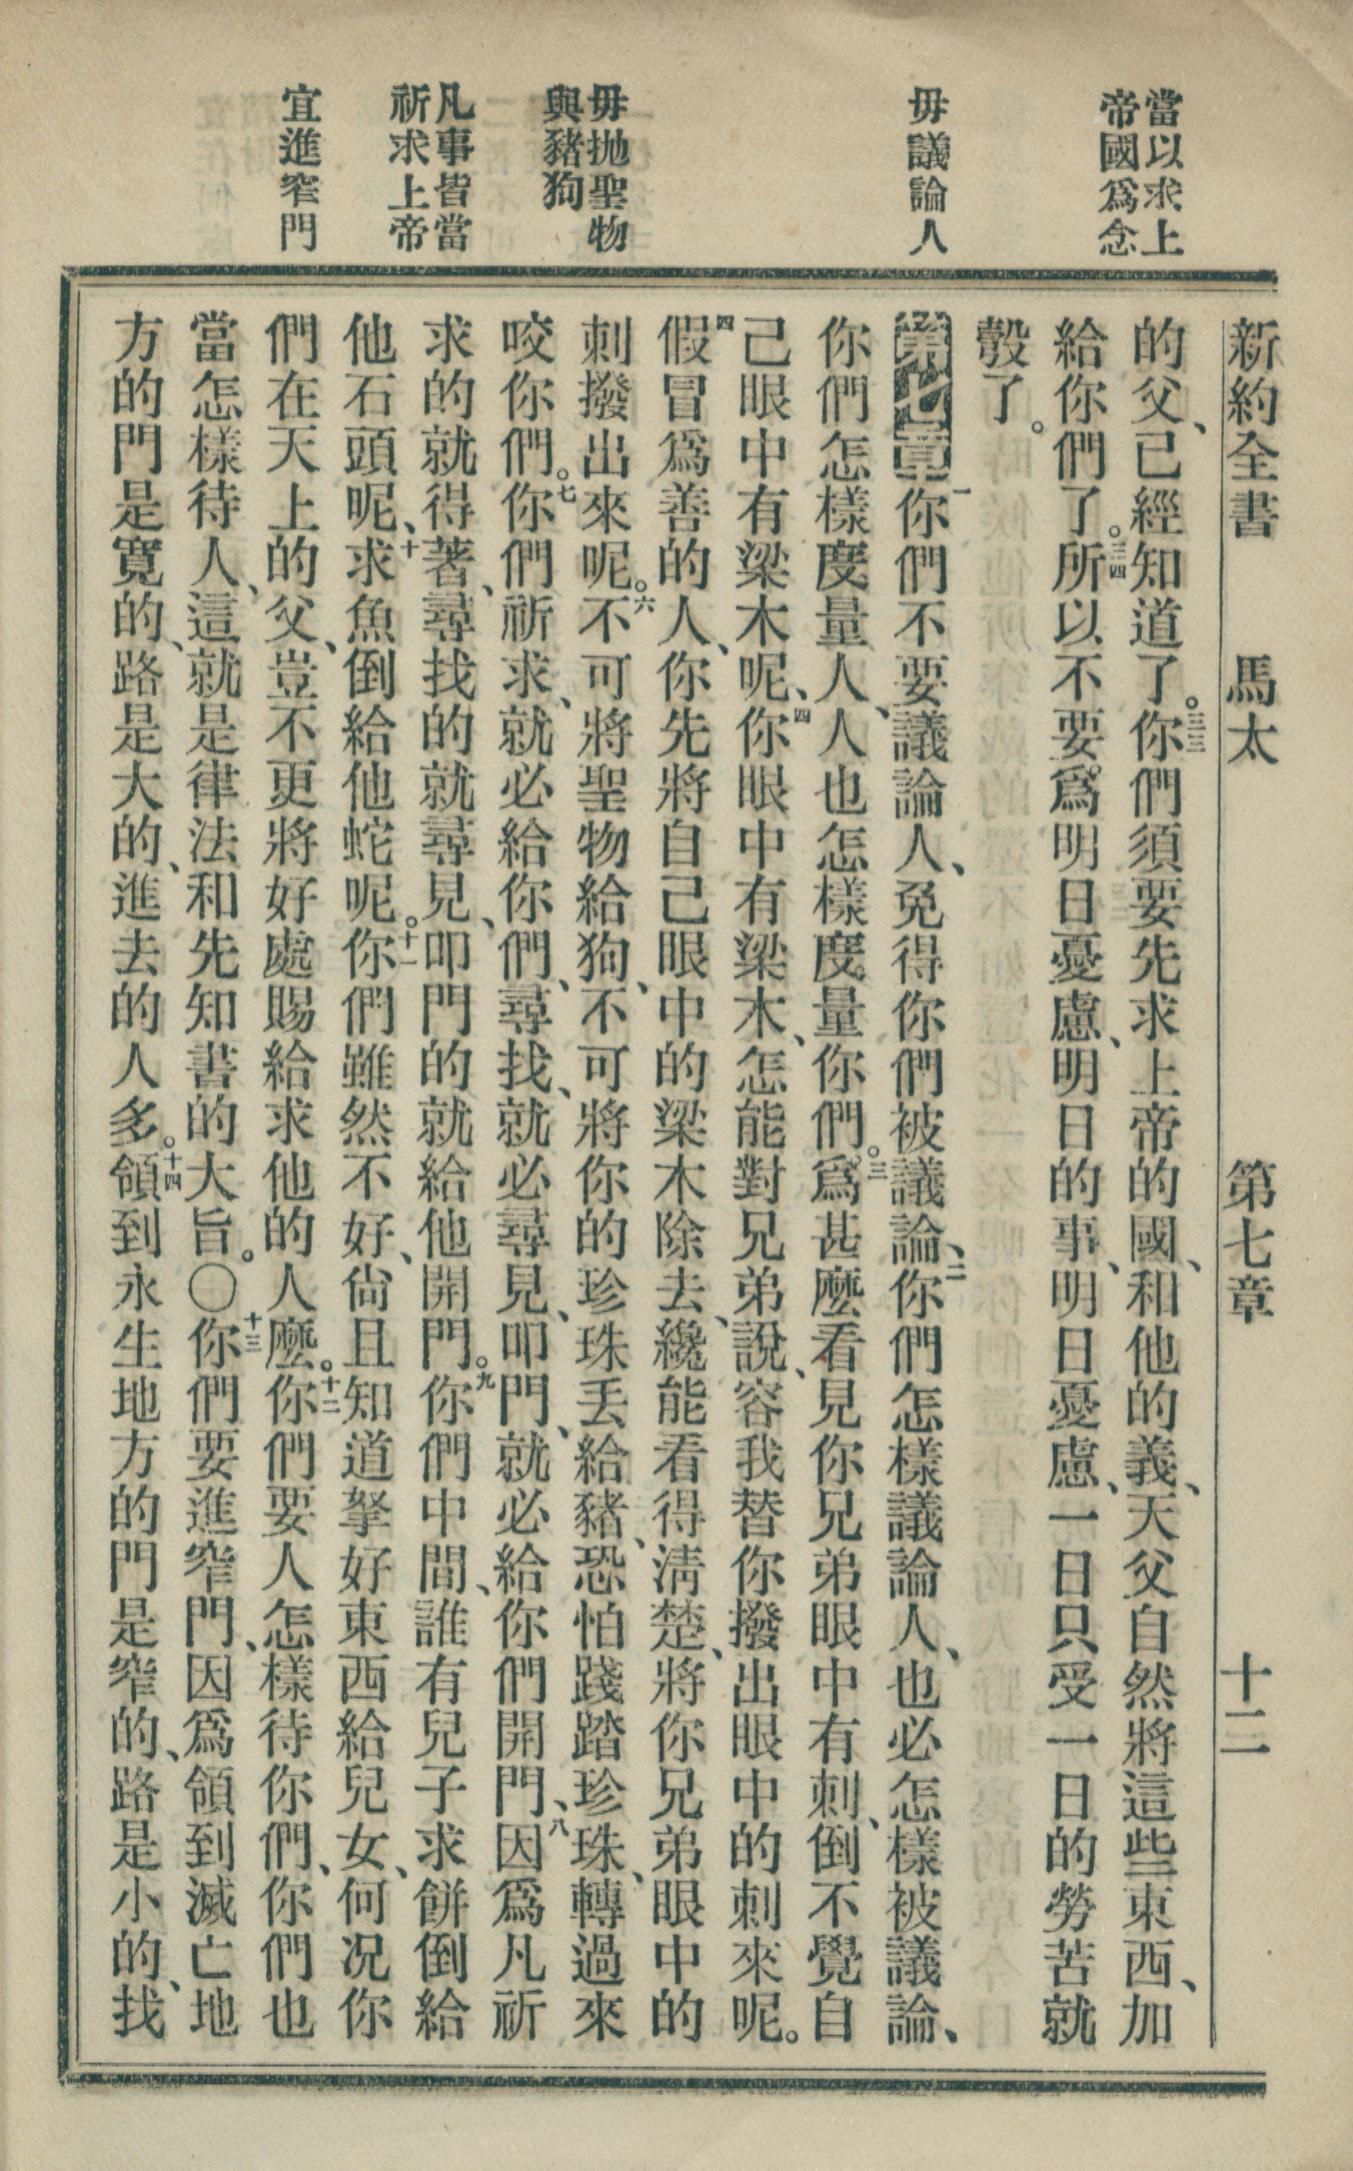 當以求上
帝國爲念
毋議論人
毋抛聖物
與豬狗
凡事皆當
祈求上帝
宜進窄門
新約全書　馬太　第七章　十二
的父、已經知道了。三三你們須要先求上帝的國、和他的義、天父自然將這些東西、加
給你們了。三四所以不要爲明日憂慮、明日的事、明日憂慮、一日只受一日的勞苦就
彀了。
第七章一你們不要議論人、免得你們被議論、二你們怎樣議論人、也必怎樣被議論、
你們怎樣度量人、人也怎樣度量你們。三爲甚麼看見你兄弟眼中有刺、倒不覺自
己眼中有梁木呢、四你眼中有梁木、怎能對兄弟說、容我替你撥出眼中的刺來呢。
四假冒爲善的人、你先將自己眼中的梁木除去、纔能看得淸楚、將你兄弟眼中的
刺撥出來呢。六不可將聖物給狗、不可將你的珍珠丟給豬、恐怕踐踏珍珠、轉過來
咬你們。七你們祈求、就必給你們、尋找、就必尋見、叩門、就必給你們開門、八因爲凡祈
求的就得著、尋找的就尋見、叩門的就給他開門。九你們中間、誰有兒子求餅倒給
他石頭呢、十求魚倒給他蛇呢。十一你們雖然不好、尙且知道拏好東西給兒女、何况你
們在天上的父、豈不更將好處賜給求他的人麼。十二你們要人怎樣待你們、你們也
當怎樣待人、這就是律法和先知書的大旨。〇十三你們要進窄門、因爲領到滅亡地
方的門是寬的、路是大的、進去的人多。十四領到永生地方的門是窄的、路是小的、找